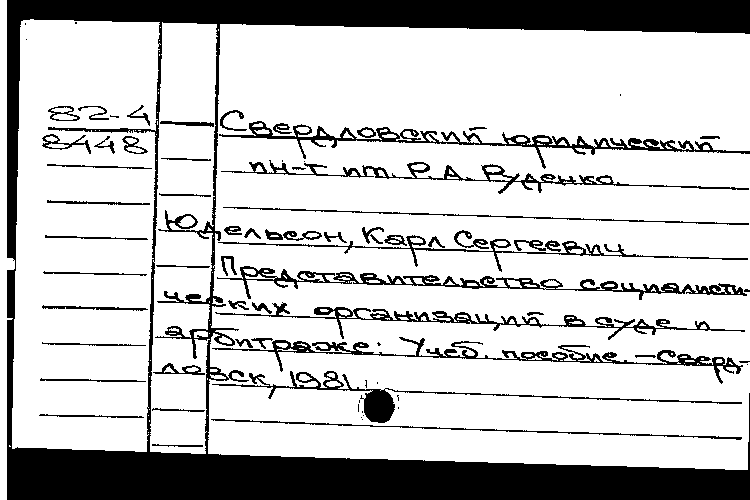 82-4
8448
Свердловский юридический
ин-т им. Р.А. Руденко.
Юдельсон, Карл Сергеевич
Представительство социалисти-
ческих организаций в суде и
арбитраже: Учеб. пособие. - Сверд-
ловск, 1981.